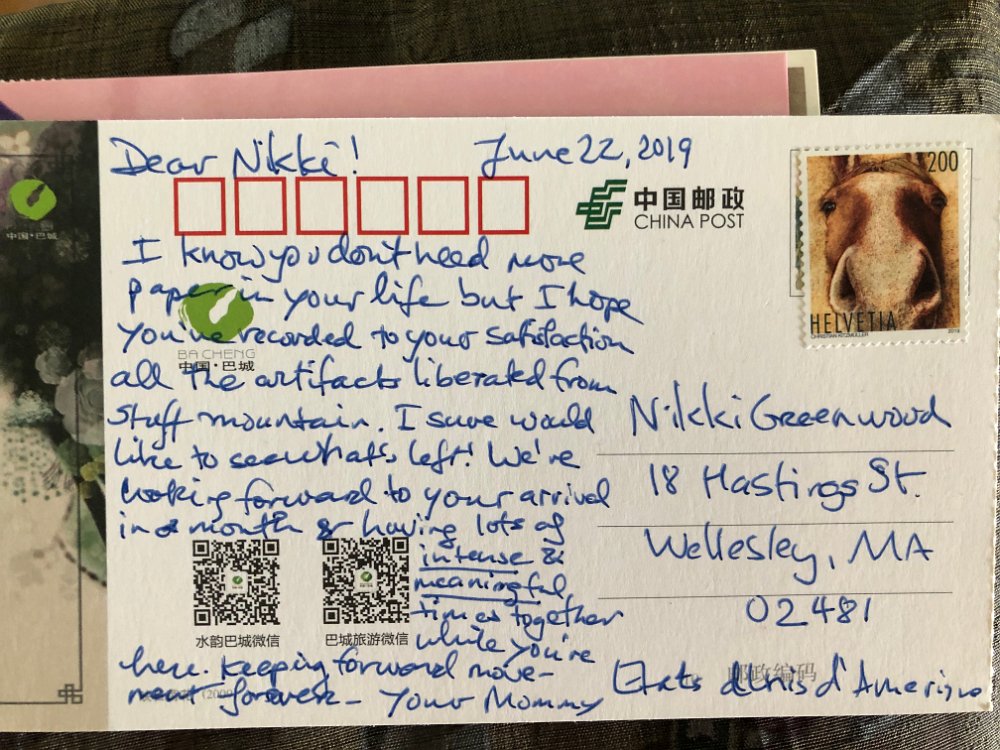 Dear Nikki! June 22, 2019
中国邮政
CHINA POST
200
HELVETIA
CHRISTIAN KITZMÜLLER 2019
中国·巴城
I know you don't need more
paper in your life but I hope
you've recorded to your satisfaction
BA CHENG
中国·巴城
all the artifacts liberated from
stuff mountain. I sure would
like to see what's left! We're
looking forward to your arrival
in a month & having lots of
intense &
meaningful
times together
while you're
水韵巴城微信
巴城旅游微信
here. Keeping forward move-
ment forever - Your Mommy
Nikki Greenwood
18 Hastings St.
Wellesley, MA
02481
邮政编码
Etats Unis d'Amerique